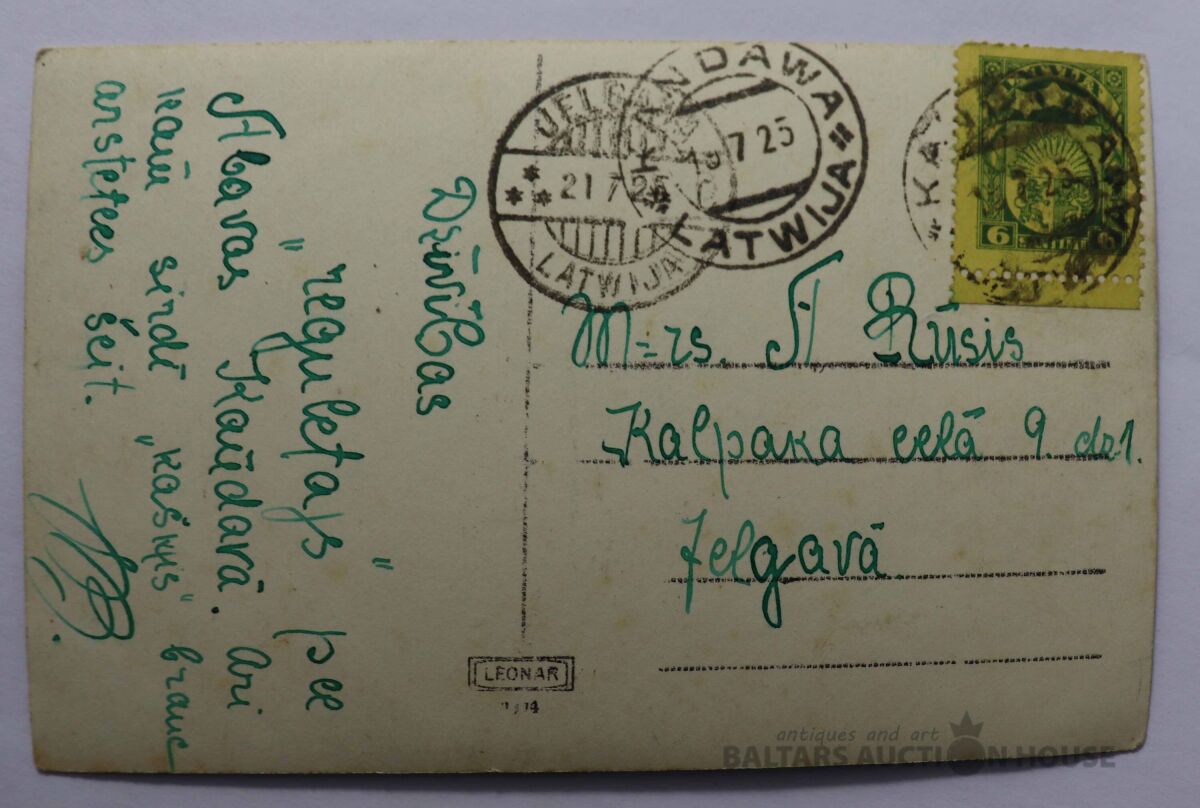 Dzīvības
„reguletajs" pee
Abavas Kandavā. Ari
kam sirdī „kašķis" brauc
arstetees šeit.
JELGAVA
21 7 25
LATWIJA
KANDAWA
7 25
LATWIJA
LATVIJA
6
M-rs. A Rūsis
Kalpaka celā 9. dz 1.
Jelgavā
LEONAR
antiques and art
BALTARS AUCTION HOUSE